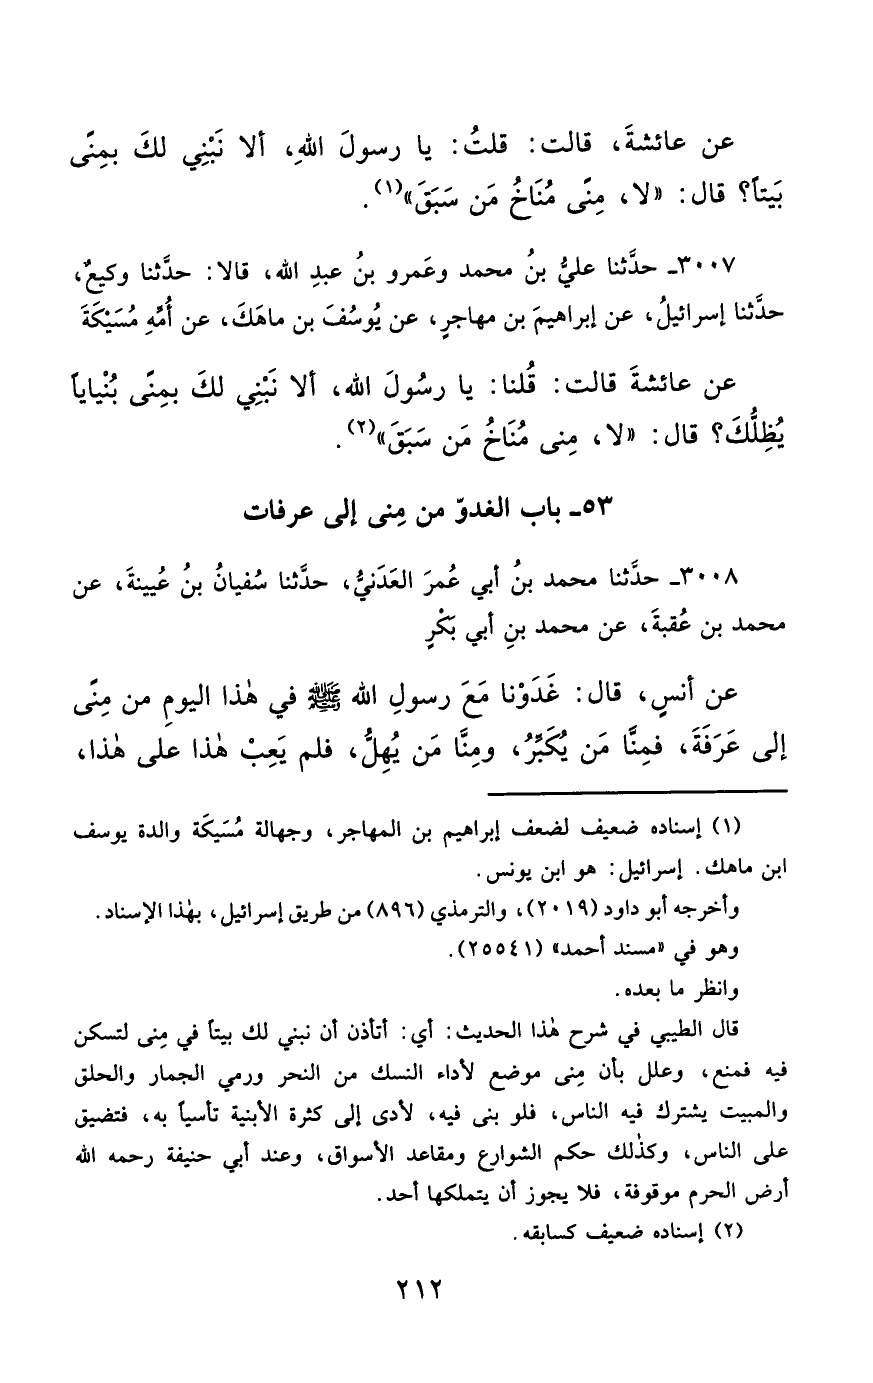 عن عائشةَ، قالت: قلتُ: يا رسولَ اللهِ، ألا نَبْنِي لكَ بمِنًى
بَيتاً؟ قال: «لا، مِنًى مُنَاخُ مَن سَبَقَ»(١).
٣٠٠٧ـ حدَّثنا عليُّ بنُ محمد وعَمرو بنُ عبدِ الله، قالا: حدَّثنا وكيعٌ،
حدَّثنا إسرائيلُ، عن إبراهيمَ بن مهاجرٍ، عن يُوسُفَ بن ماهَكَ، عن أُمِّهِ مُسَيْكَةَ
عن عائشةَ قالت: قُلنا: يا رسُولَ الله، ألا نَبْنِي لكَ بمِنًى بُنْياياً
يُظِلُّكَ؟ قال: «لا، مِنى مُنَاخُ مَن سَبَقَ»(٢).
٥٣ـ باب الغدوّ من مِنى إلى عرفات
٣٠٠٨ـ حدَّثنا محمد بنُ أبي عُمرَ العَدَنيُّ، حدَّثنا سُفيانُ بنُ عُيينةَ، عن
محمد بن عُقبةَ، عن محمد بنِ أبي بَكْرٍ
عن أنسٍ، قال: غَدَوْنا مَعَ رسولِ الله ﷺ في هٰذا اليومِ من مِنًى
إلى عَرَفَةَ، فمِنَّا مَن يُكَبِّرُ، ومِنَّا مَن يُهِلُّ، فلم يَعِبْ هٰذا على هٰذا،
(١) إسناده ضعيف لضعف إبراهيم بن المهاجر، وجهالة مُسَيكَة والدة يوسف
ابن ماهك. إسرائيل: هو ابن يونس.
وأخرجه أبو داود (٢٠١٩)، والترمذي (٨٩٦) من طريق إسرائيل، بهٰذا الإسناد.
وهو في «مسند أحمد» (٢٥٥٤١).
وانظر ما بعده.
قال الطيبي في شرح هٰذا الحديث: أي: أتأذن أن نبني لك بيتاً في مِنى لتسكن
فيه فمنع، وعلل بأن مِنى موضع لأداء النسك من النحر ورمي الجمار والحلق
والمبيت يشترك فيه الناس، فلو بنى فيه، لأدى إلى كثرة الأبنية تأسياً به، فتضيق
على الناس، وكذٰلك حكم الشوارع ومقاعد الأسواق، وعند أبي حنيفة رحمه الله
أرض الحرم موقوفة، فلا يجوز أن يتملكها أحد.
(٢) إسناده ضعيف كسابقه.
٢١٢